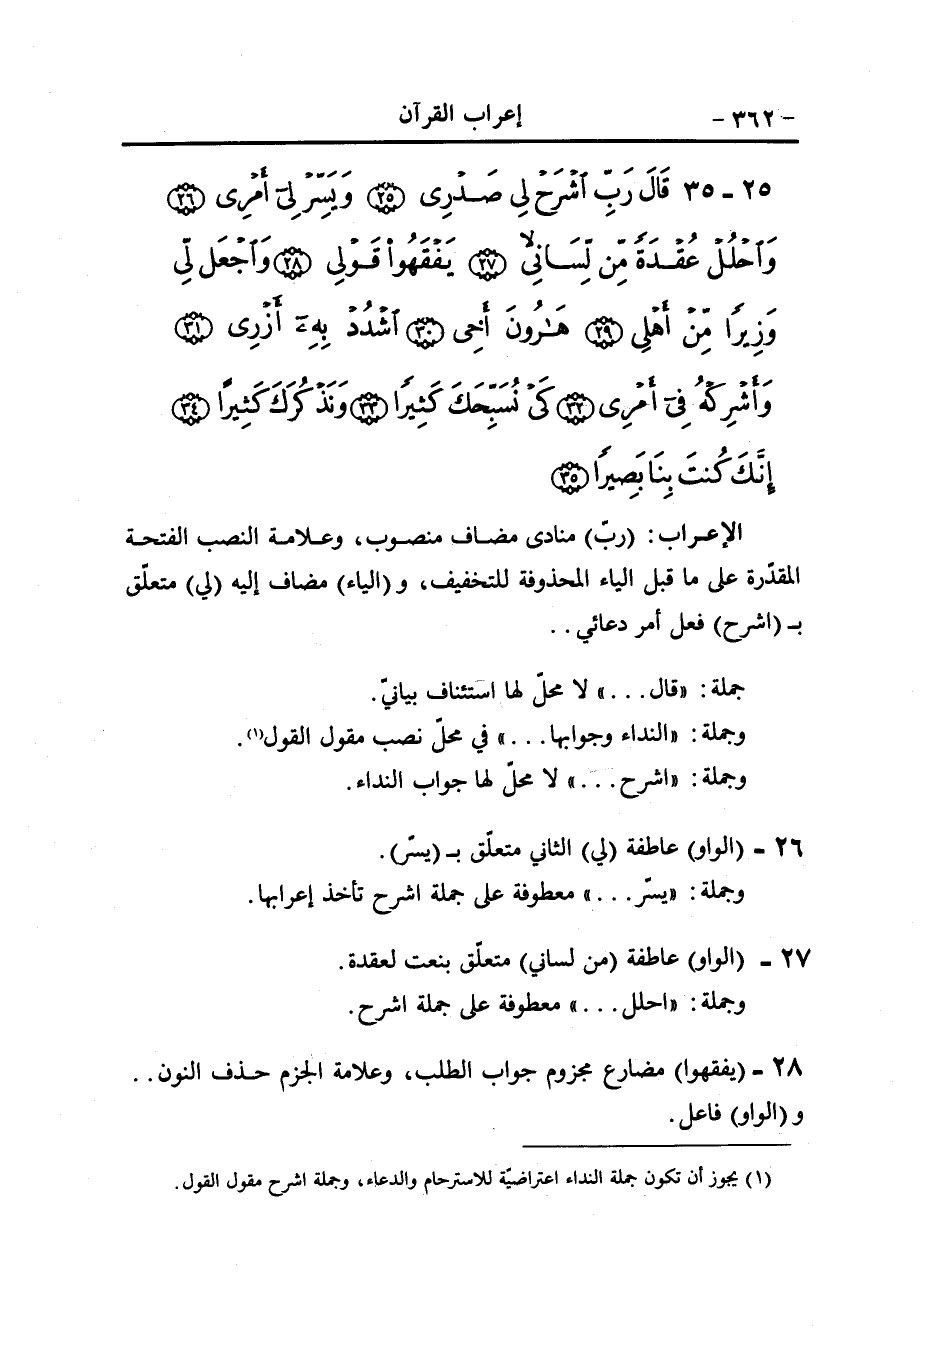 - ٣٦٢ - إعراب القرآن
٢٥ - ٣٥ قَالَ رَبِّ ٱشْرَحْ لِى صَدْرِى ﴿٢٥﴾ وَيَسِّرْ لِىٓ أَمْرِى ﴿٢٦﴾
وَٱحْلُلْ عُقْدَةً مِّن لِّسَانِى ﴿٢٧﴾ يَفْقَهُوا۟ قَوْلِى ﴿٢٨﴾ وَٱجْعَل لِّى
وَزِيرًا مِّنْ أَهْلِى ﴿٢٩﴾ هَٰرُونَ أَخِى ﴿٣٠﴾ ٱشْدُدْ بِهِۦٓ أَزْرِى ﴿٣١﴾
وَأَشْرِكْهُ فِىٓ أَمْرِى ﴿٣٢﴾ كَىْ نُسَبِّحَكَ كَثِيرًا ﴿٣٣﴾ وَنَذْكُرَكَ كَثِيرًا ﴿٣٤﴾
إِنَّكَ كُنتَ بِنَا بَصِيرًا ﴿٣٥﴾
الإعراب: (ربّ) منادى مضاف منصوب، وعلامة النصب الفتحة
المقدّرة على ما قبل الياء المحذوفة للتخفيف، و (الياء) مضاف إليه (لي) متعلّق
بـ (اشرح) فعل أمر دعائي..
جملة: «قال...» لا محلّ لها استئناف بيانيّ.
وجملة: «النداء وجوابها...» في محلّ نصب مقول القول(١).
وجملة: «اشرح...» لا محلّ لها جواب النداء.
٢٦ - (الواو) عاطفة (لي) الثاني متعلّق بـ (يسّر).
وجملة: «يسّر...» معطوفة على جملة اشرح تأخذ إعرابها.
٢٧ - (الواو) عاطفة (من لساني) متعلّق بنعت لعقدة.
وجملة: «احلل...» معطوفة على جملة اشرح.
٢٨ - (يفقهوا) مضارع مجزوم جواب الطلب، وعلامة الجزم حذف النون..
و (الواو) فاعل.
(١) يجوز أن تكون جملة النداء اعتراضيّة للاسترحام والدعاء، وجملة اشرح مقول القول.